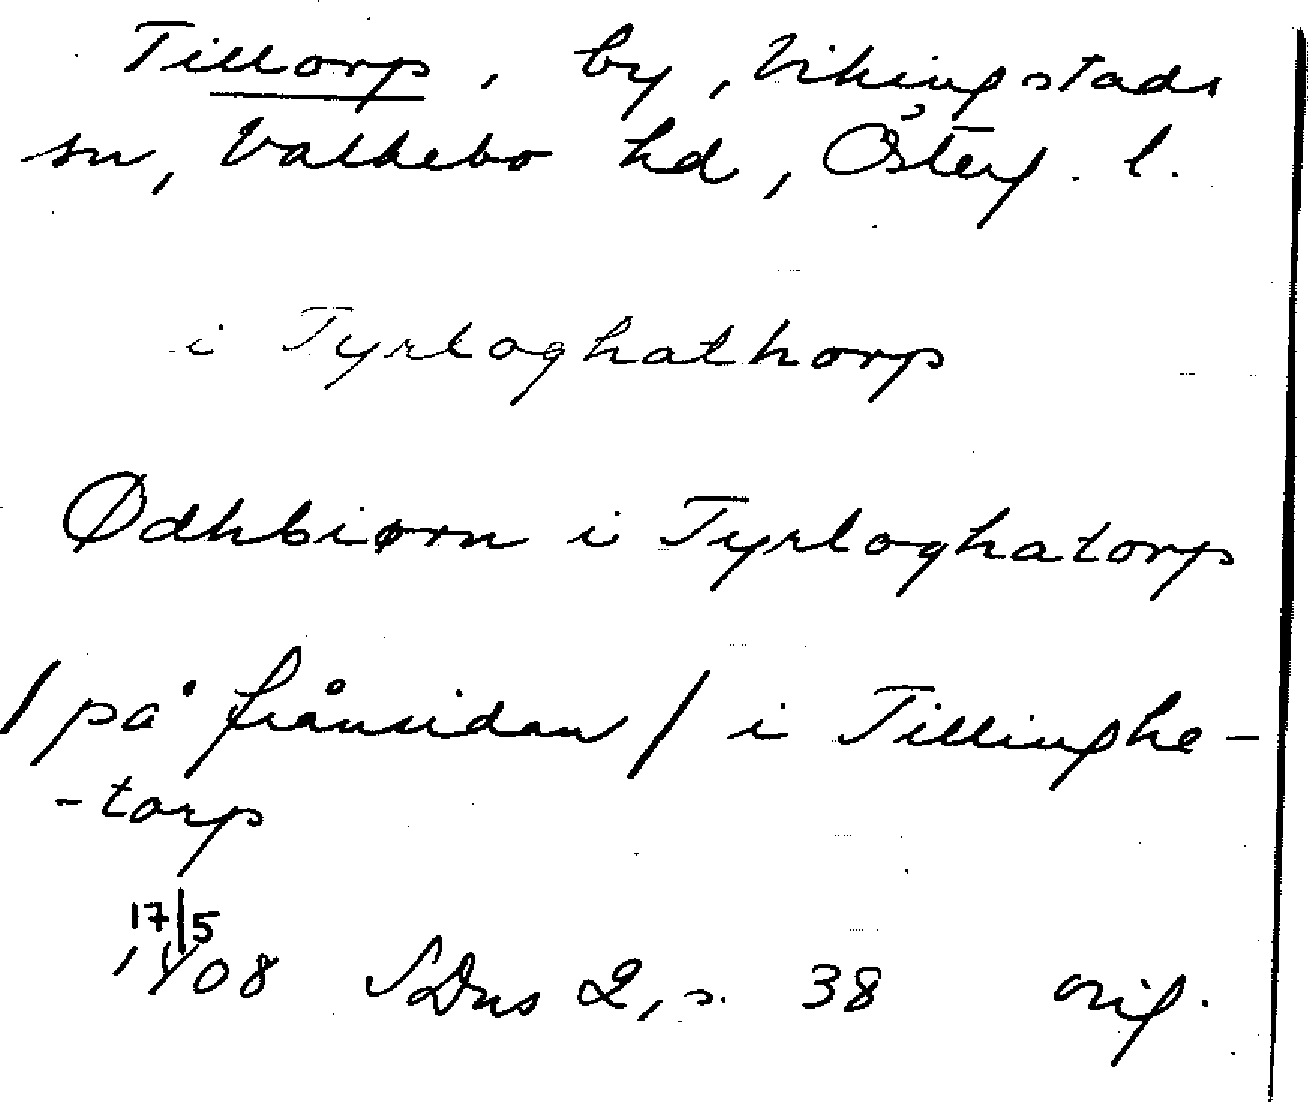 Tillorp, by, Vikingstads
sn, Valkebo hd, Österg. l.
i Tyrloghathorp
Ødhbiørn i Tyrloghatorp
/ på frånsidan / i Tillinghe-
-torp
17/5
1408 SDns 2, s. 38 orig.